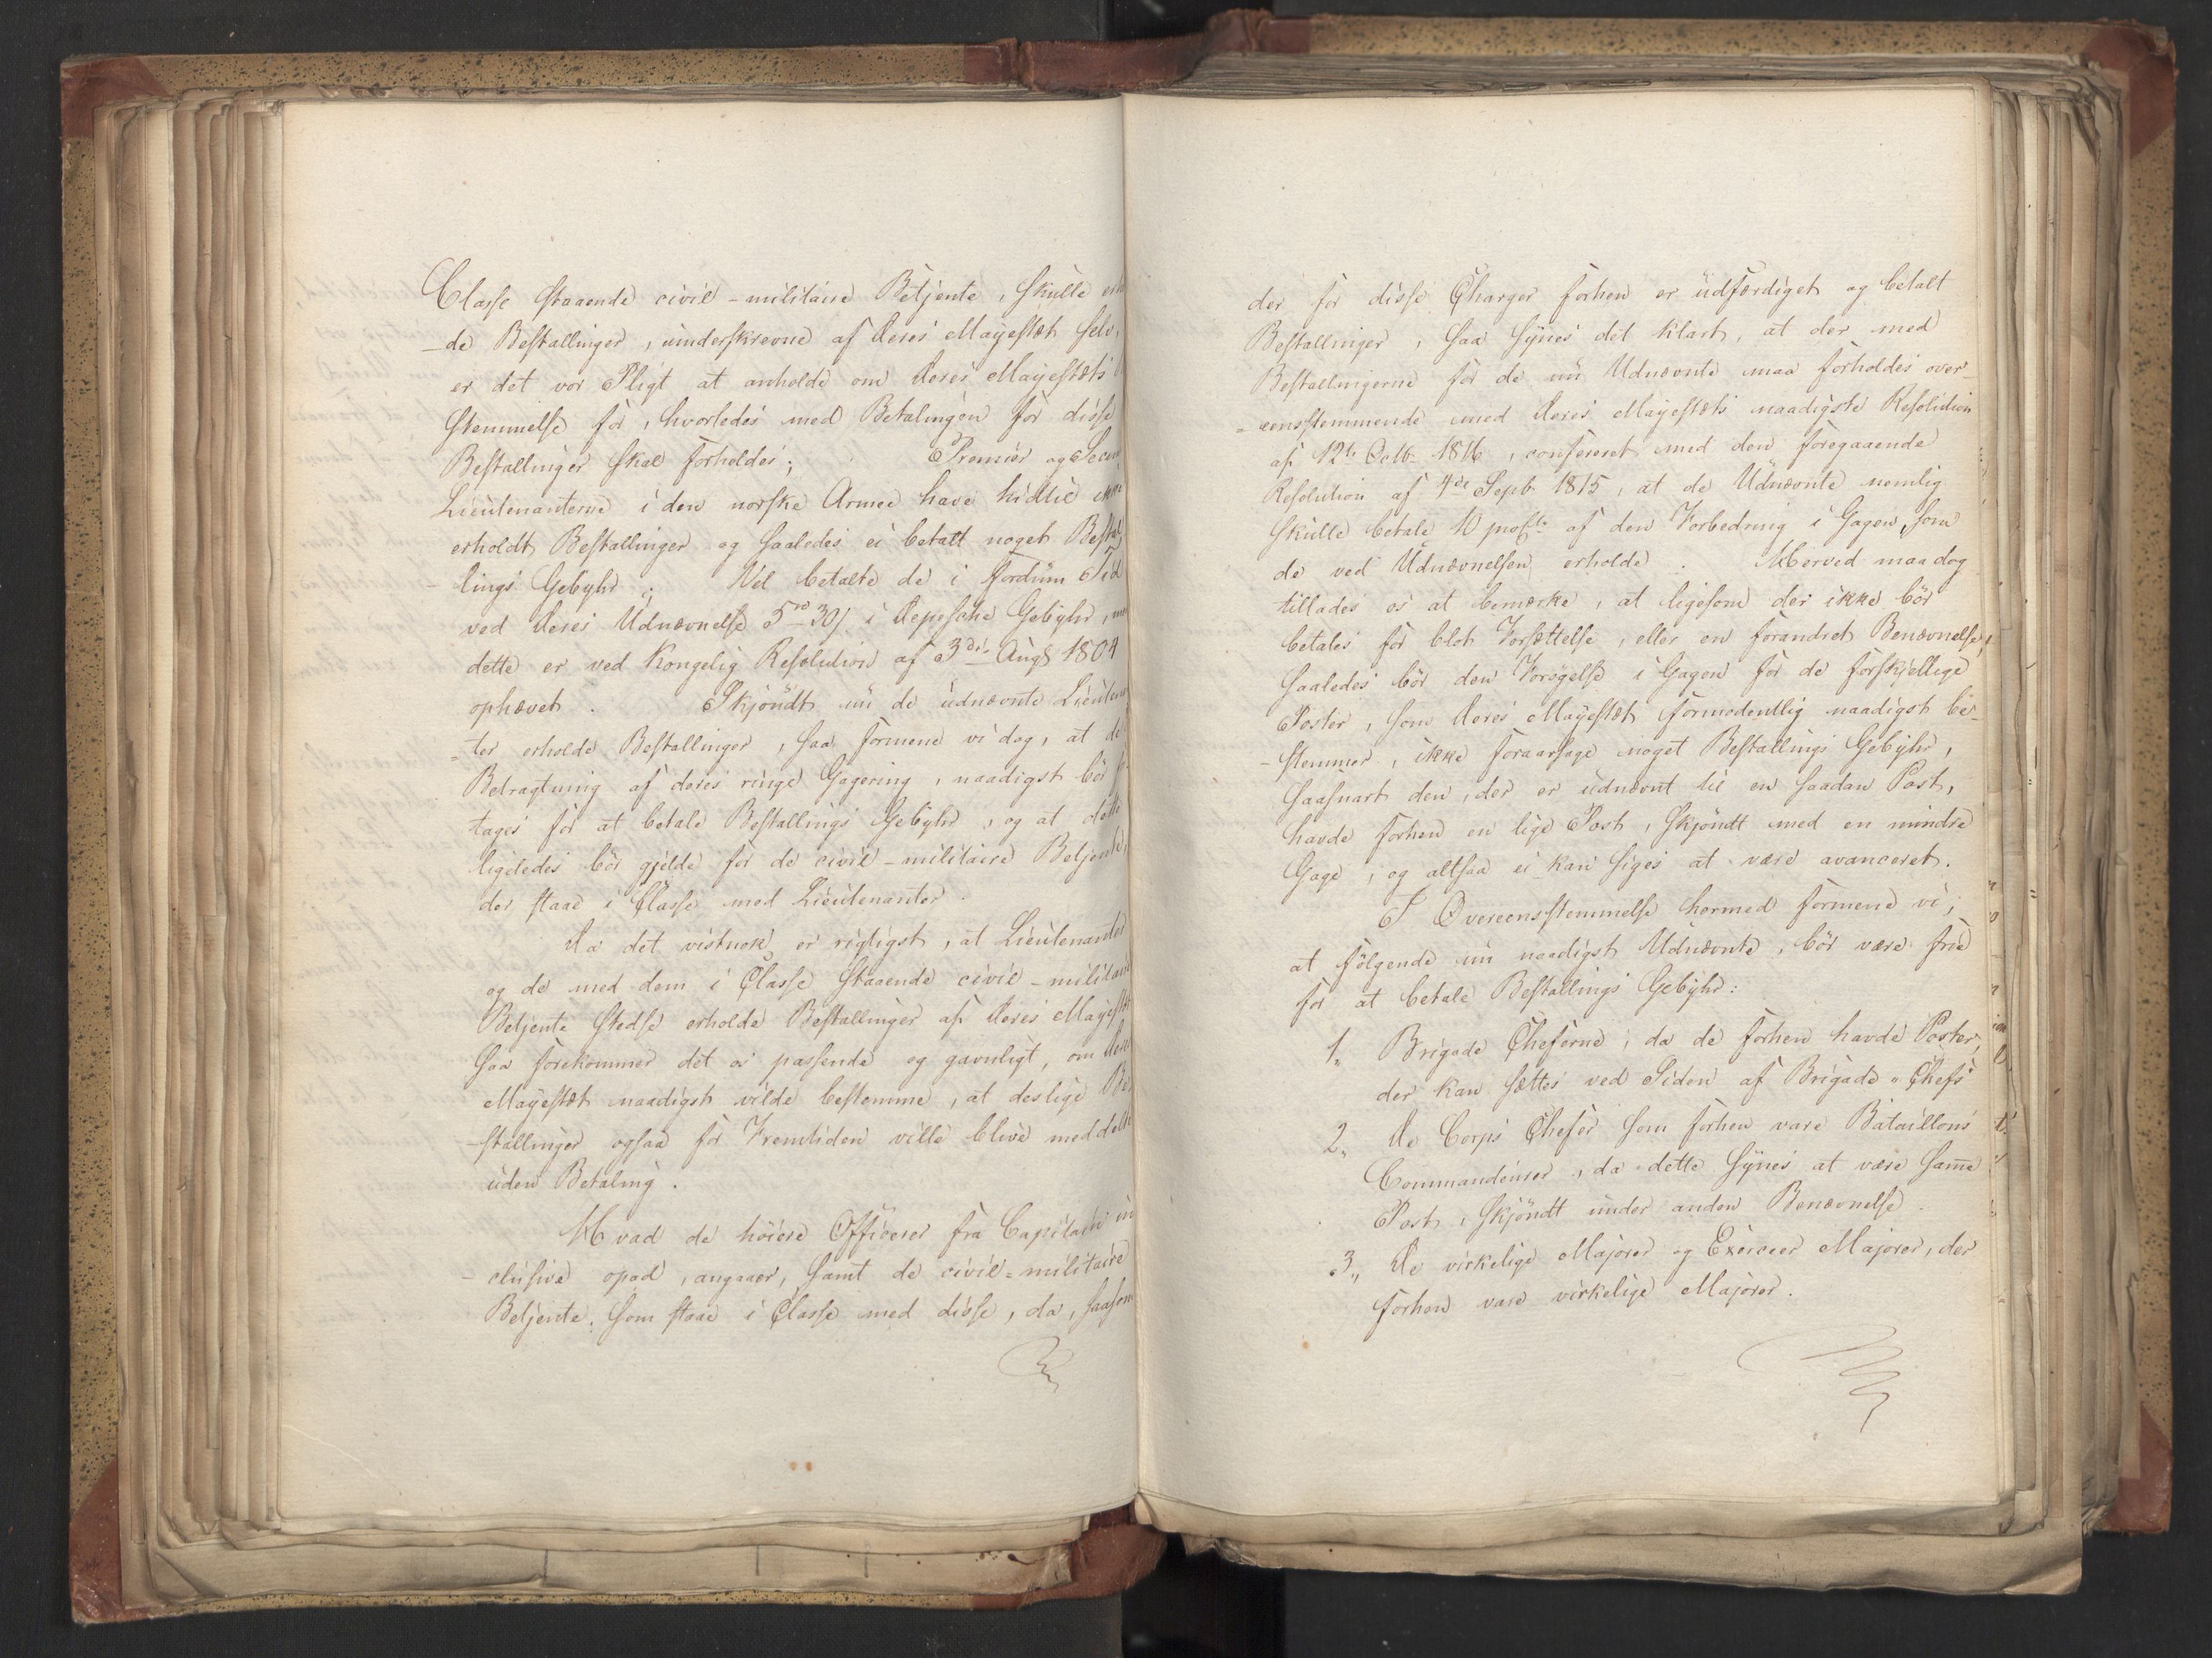 Classe staaende civil-militaire Betjente, skulle erh
-de Bestallinger, underskrevne af Deres Mayestæt selv,
er det vor Pligt at anholde om Deres Mayestæts
stemmelse for, hvorledes med Betalingen for disse
Bestallinger skal forholdes; Premier og Secon
Lieutenanterne i den norske Armee have hidtil ikke
erholdt Bestallinger og saaledes ei betalt noget Bestal
-lings Gebyhr; Vel betalte de i fordum Tid
ved Deres Udnævnelse 5 rd 30 s i Depesche Gebyhr, me
dette er ved Kongelig Resolution af 3die Augt 1804
ophævet. Skjöndt nu de udnævnte Lieutena
-ter erholde Bestallinger, saa formene vi dog, at de
Betragtning af deres ringe Gagering, naadigst bör f
tages for at betale Bestallings Gebyhr, og at dette
ligeledes bör gjelde for de civil-militaire Betjente,
der staae i Classe med Lieutenanter.
Da det vistnok er rigtigst, at Lieutenanter
og de med dem i Classe staaende civil-militaire
Betjente stedse erholde Bestallinger af Deres Mayestæt
saa forekommer det os passende og gavnligt, om Deres
Mayestæt naadigst vilde bestemme, at deslige Be
-stallinger ogsaa for Fremtiden ville blive meddelte
uden Betaling.
Hvad de höiere Officerer fra Capitain in
-clusive opad, angaaer, samt de civil-militaire
Betjente, som staae i Classe med disse, da, saasom
der for disse Charger forhen er udfærdiget og betalt
Bestallinger, saa synes det klart, at der med
Bestallingerne for de nu Udnævnte maa forholdes over-
-eensstemmende med Deres Mayestæts naadigste Resolution
af 12te Octb. 1816, confereret med den foregaaende
Resolution af 4de Septb. 1815, at de Udnævnte nemlig
skulle betale 10 procto af den Forbedring i Gagen, som
de ved Udnævnelsen erholde. Herved maa dog
tillades os at bemærke, at ligesom der ikke bör
betales for blot Forsættelse, eller en forandret Benævnelse,
saaledes bör den Forögelse i Gagen for de forskjellige
Poster, som Deres Mayestæt formodentlig naadigst be-
-stemmer, ikke foraarsage noget Bestallings Gebyhr,
saasnart den, der er udnævnt til en saadan Post,
havde forhen en lige Post, skjöndt med en mindre
Gage, og altsaa ei kan siges at være avanceret.
I Overeensstemmelse hermed formene vi,
at fölgende nu naadigst Udnævnte, bör være frie
for at betale Bestallings Gebyhr:
1, Brigade Cheferne, da de forhen havde Poster,
der kan sættes ved Siden af Brigade-Chefs
2, De Corps Chefer som forhen vare Bataillons
Commandeurer, da dette synes at være samme
Post, skjöndt under anden Benævnelse.
3,, De virkelige Majorer og Exerceer Majorer, der
forhen vare virkelige Majorer.